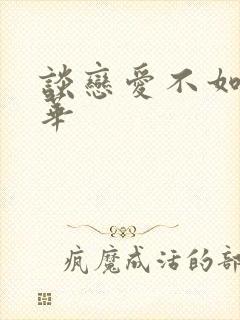 談戀愛不如
華
疯魔成活的部